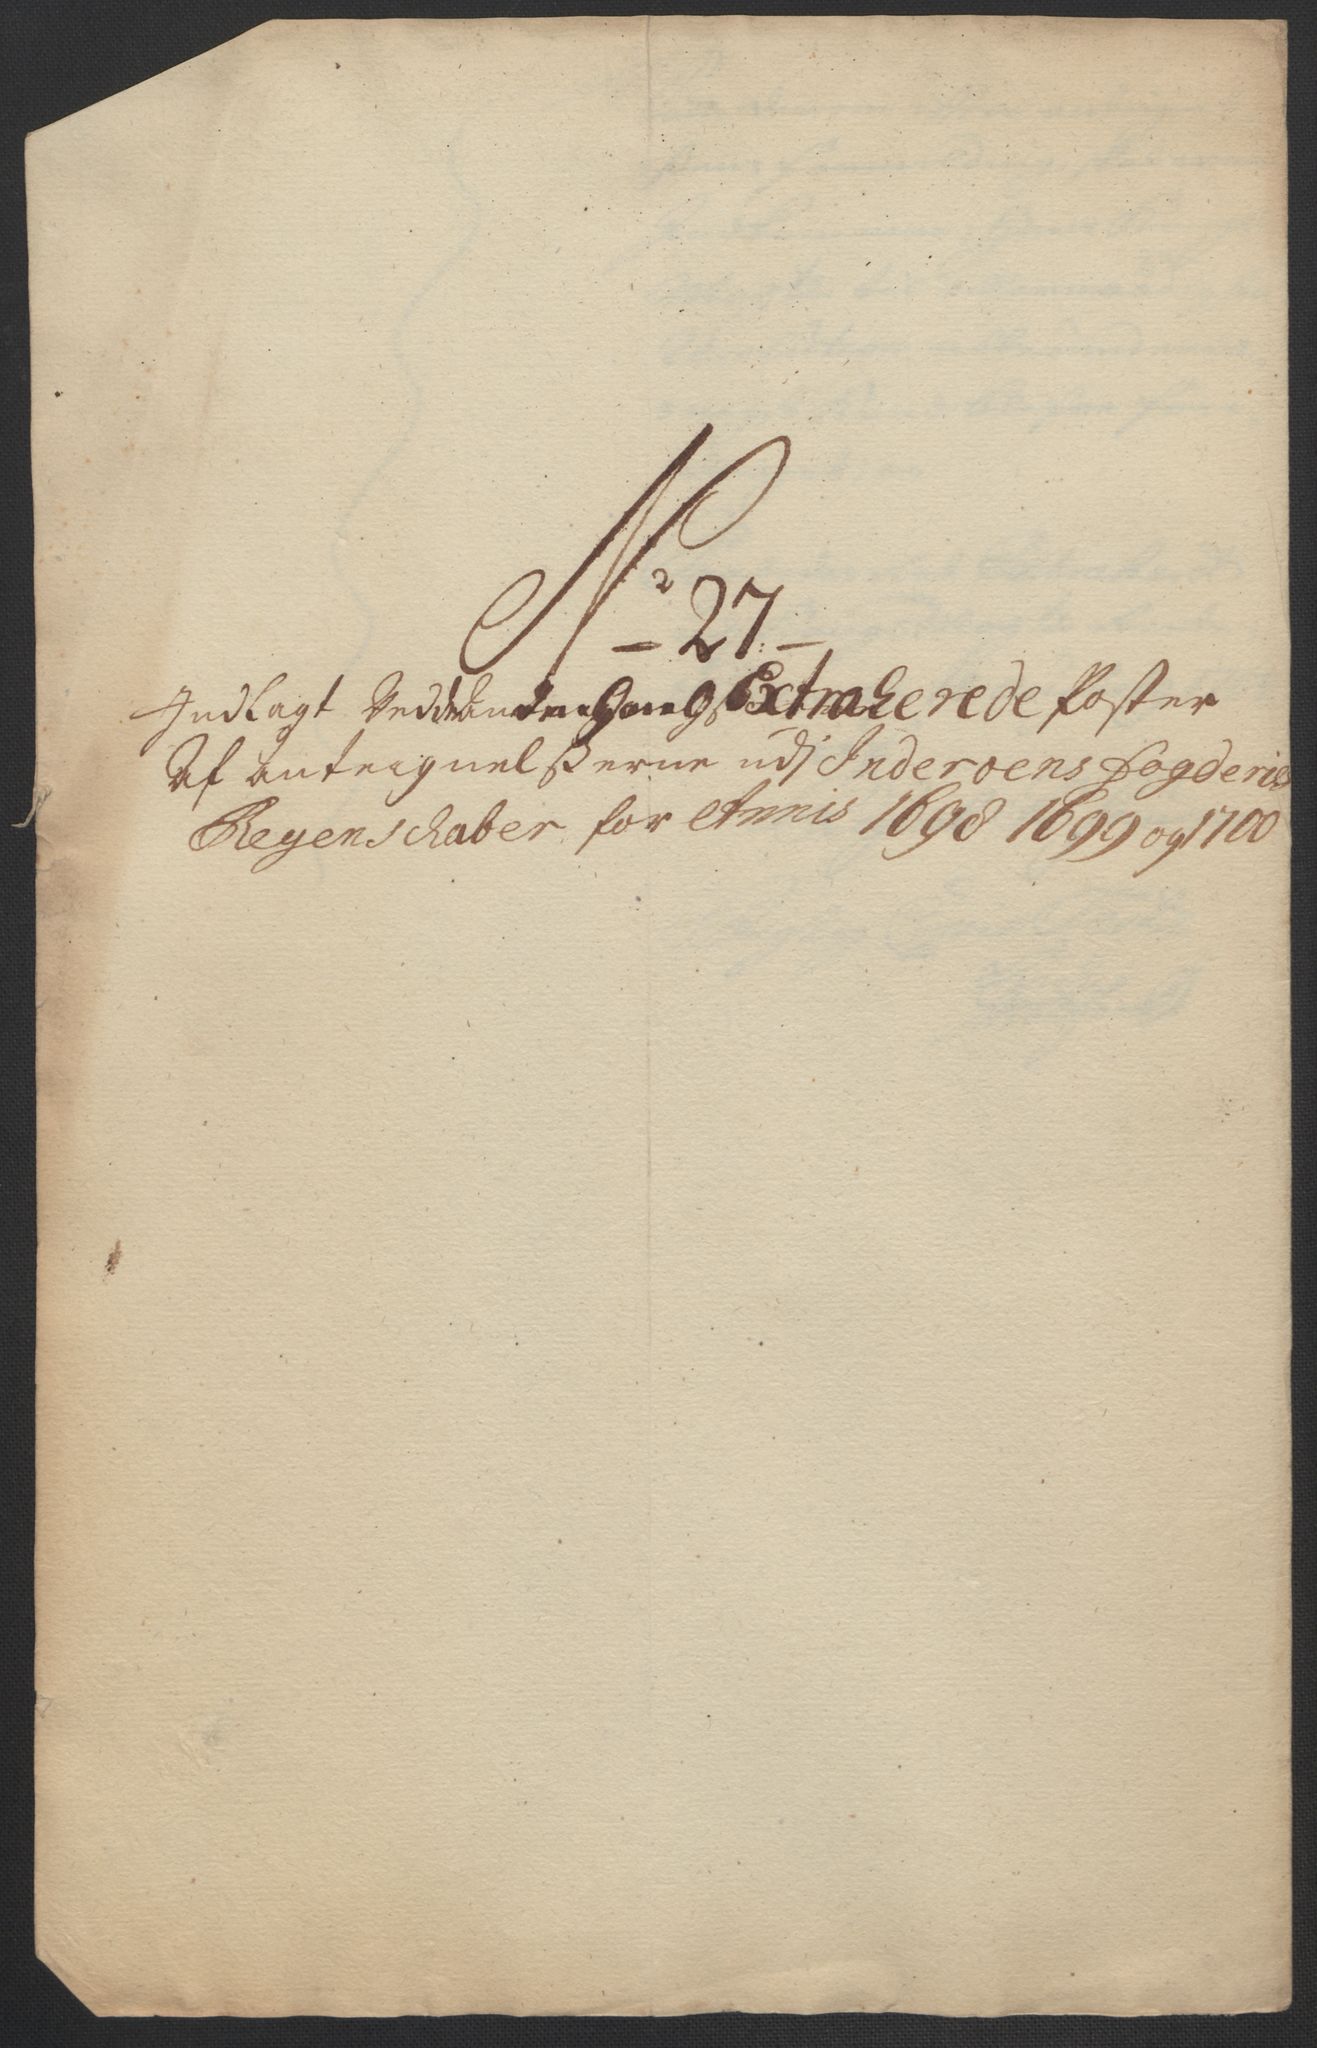 No
– 27 –
Indlagt Ved Extraherede Poster
Af Anteignelßerne udj Inderoens Fogderies
Regenschaber for Annis 1698 1699 og 1700